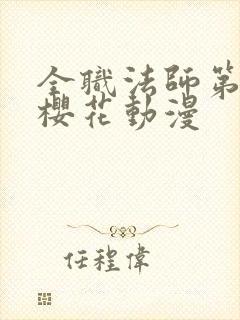 全職法師第
櫻花動漫
任程偉